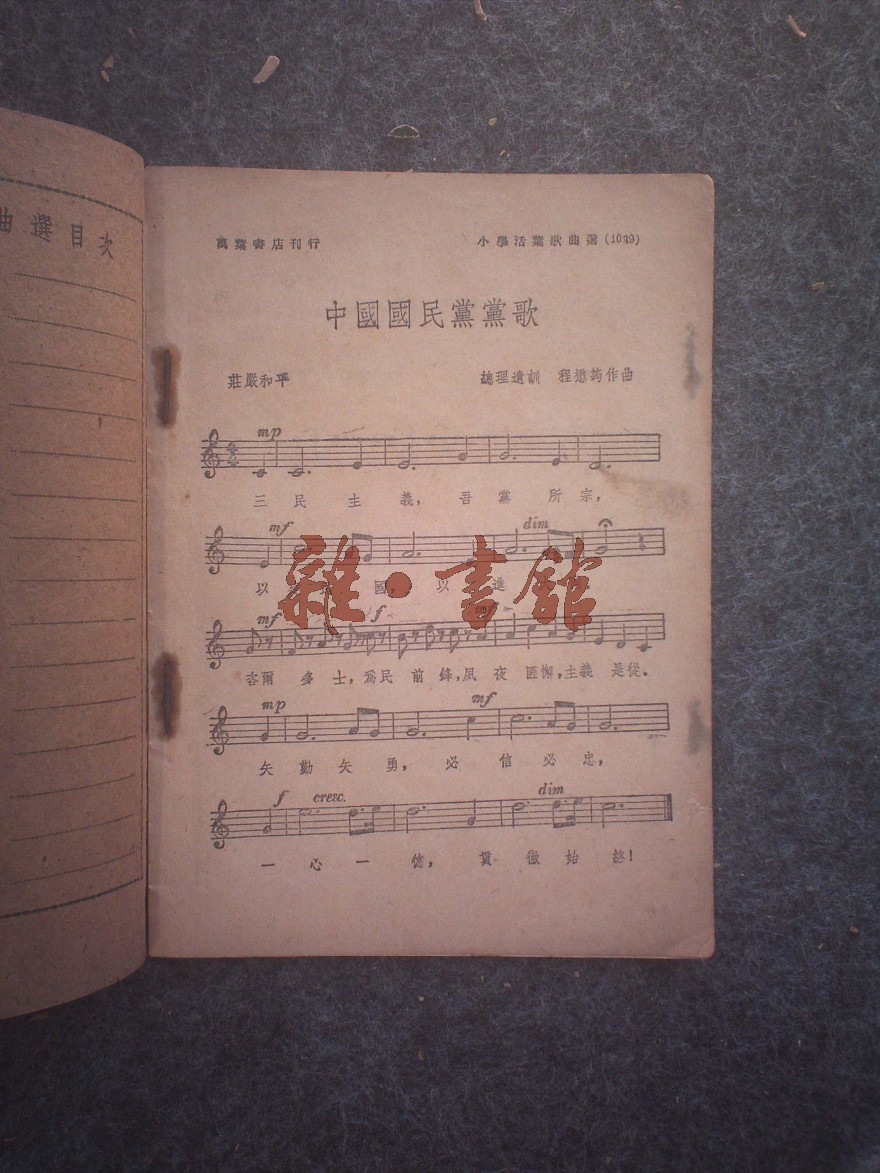 曲選目次
萬葉書店刊行 小學活葉歌曲選(1049)
中國國民黨黨歌
莊嚴和平 總理遺訓 程懋筠作曲
mp
三民主義,吾黨所宗,
mf dim
以 國,以進
雜·書館
mf f
咨爾多士,為民前鋒,夙夜匪懈,主義是從。
mp mf
矢勤矢勇,必信必忠,
f cresc. dim
一心一德,貫徹始終!